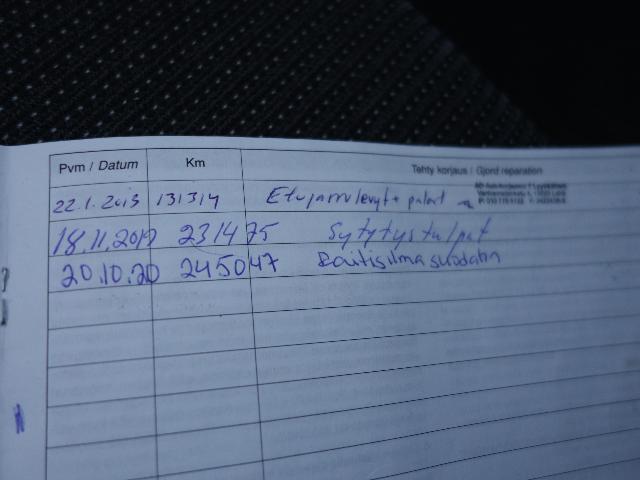 Pvm / Datum Km Tehty korjaus / Gjord reparation
22.1.2013 131314 Etujarrulevyt + palat
18.11.2019 231475 Sytytystulpat
20.10.20 245047 Raitisilmasuodatin